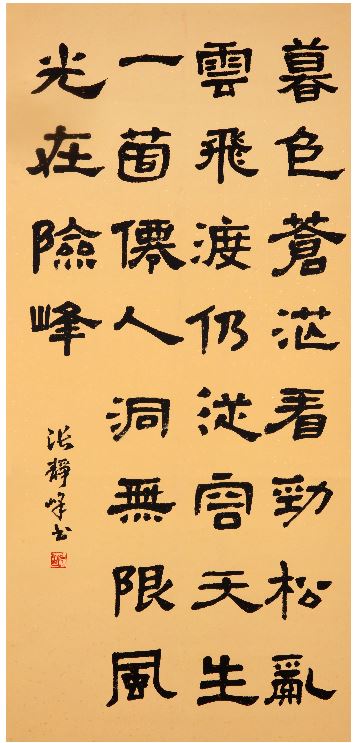 暮色蒼茫看勁松亂
雲飛渡仍從容天生
一箇僊人洞無限風
光在險峰
張靜峰书